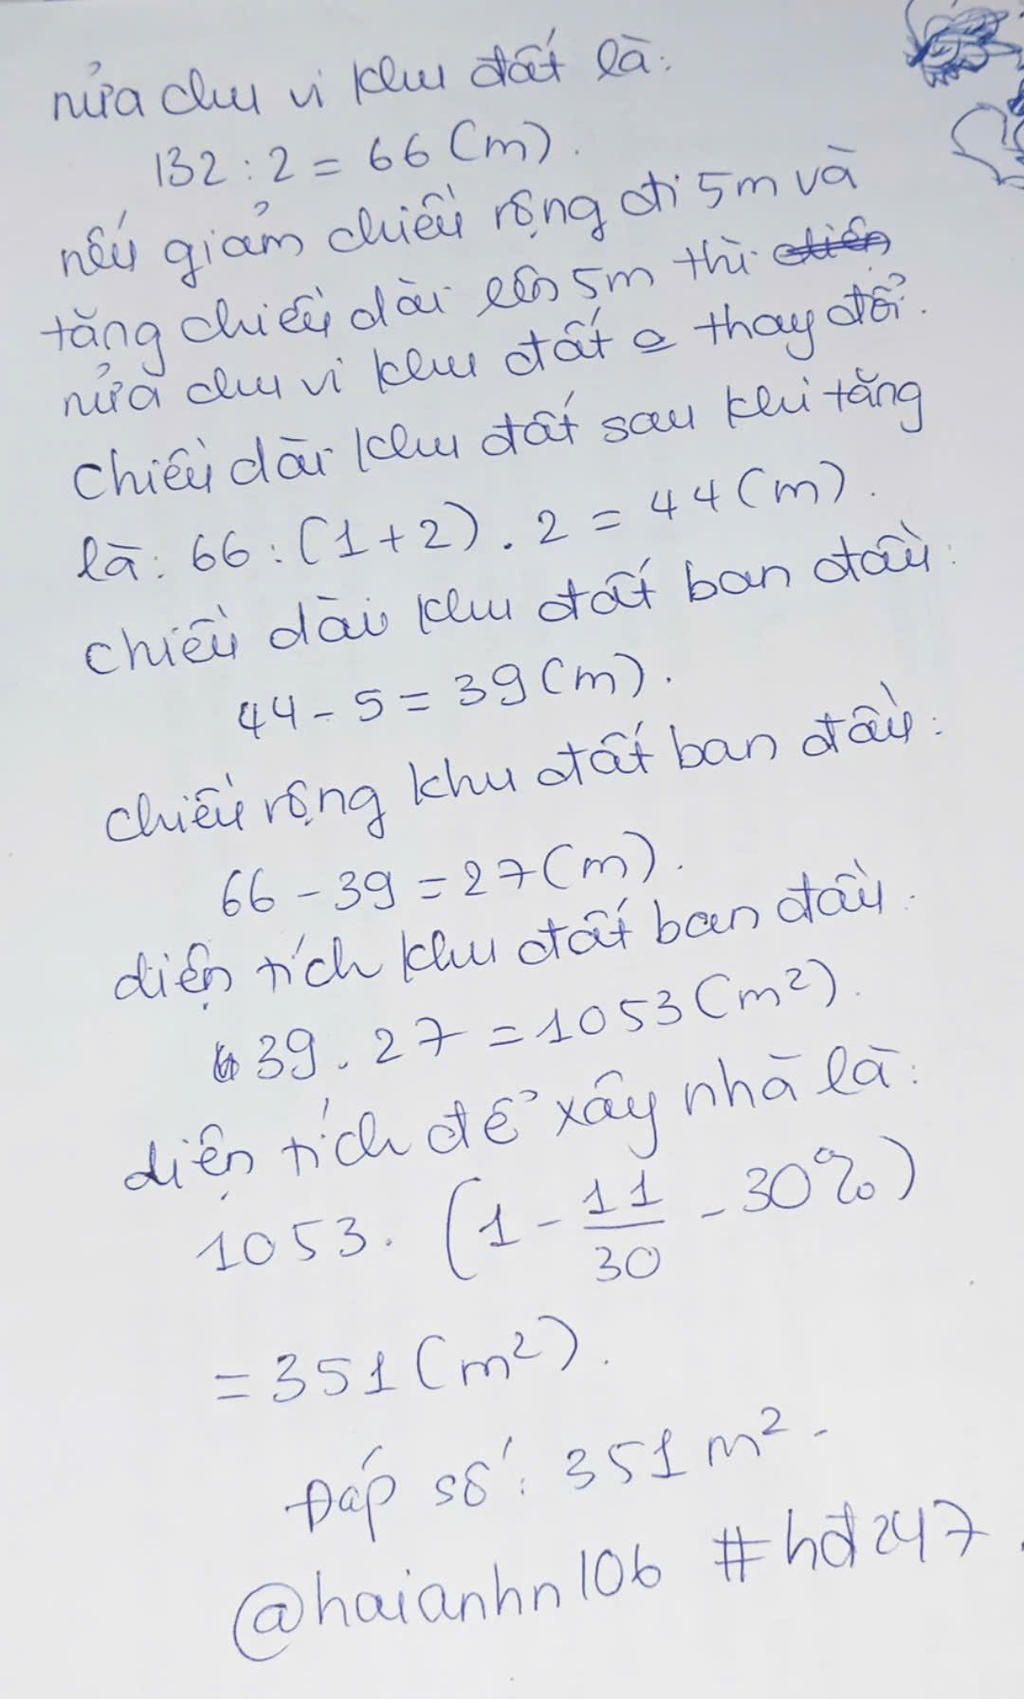 nửa chu vi khu đất là:
132 : 2 = 66 (m).
nếu giảm chiều rộng đi 5m và
tăng chiều dài lên 5m thì
nửa chu vi khu đất thay đổi.
chiều dài khu đất sau khi tăng
là: 66 : (1 + 2) . 2 = 44 (m).
chiều dài khu đất ban đầu:
44 - 5 = 39 (m).
chiều rộng khu đất ban đầu:
66 - 39 = 27 (m).
diện tích khu đất ban đầu.
39 . 27 = 1053 (m²).
diện tích để xây nhà là:
1053 . (1 - 11/30 - 30%)
= 351 (m²).
Đáp số: 351 m².
@haianhn106 #hđ247